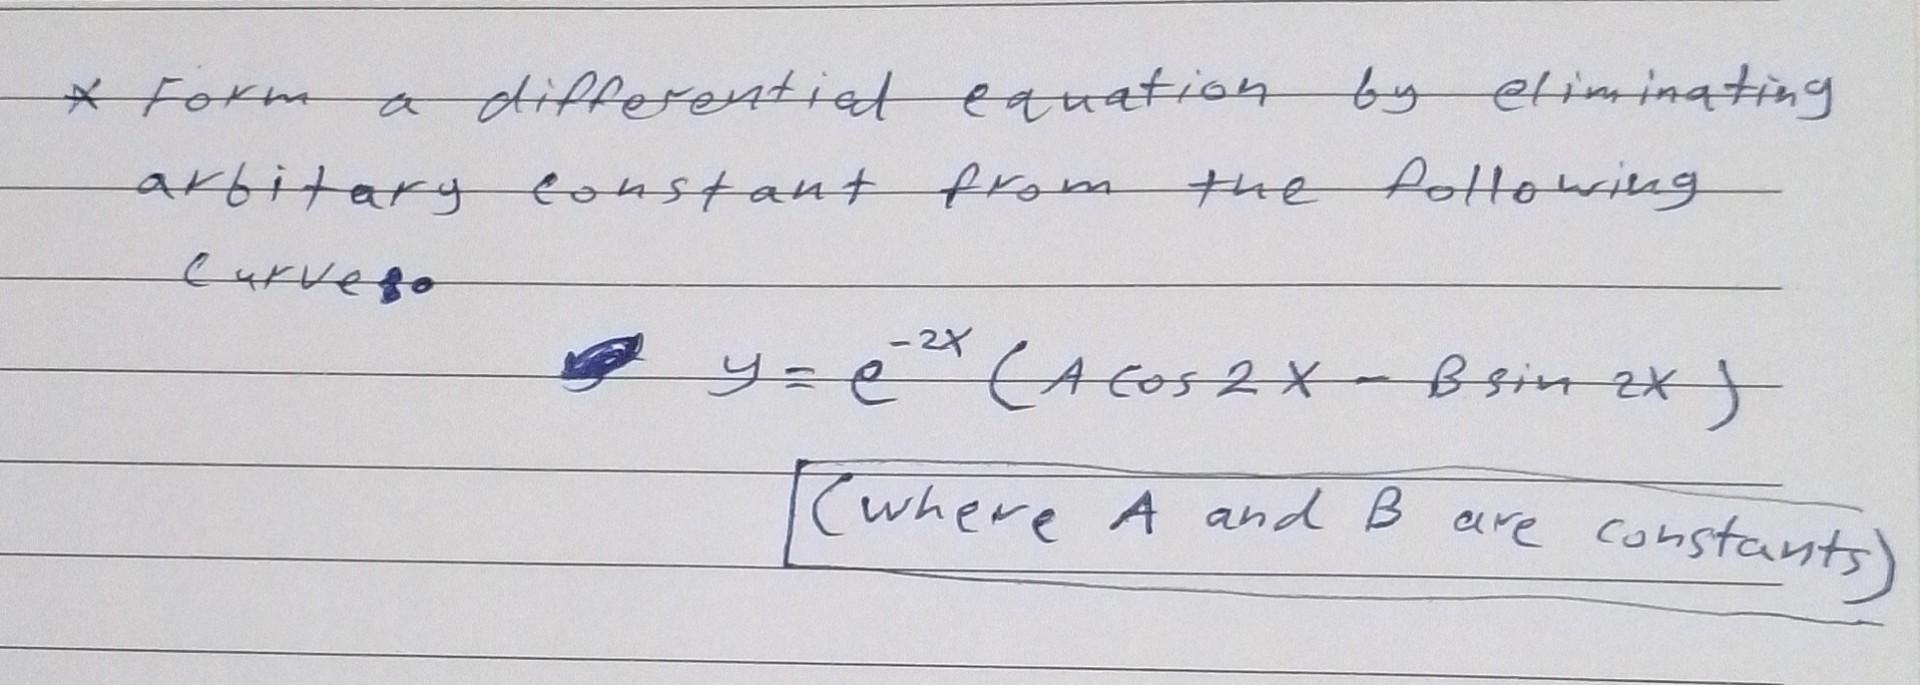 * Form a differential equation by eliminating
arbitary constant from the following
curve:
y = e^{-2x} (A cos 2x - B sin 2x)
(where A and B are constants)